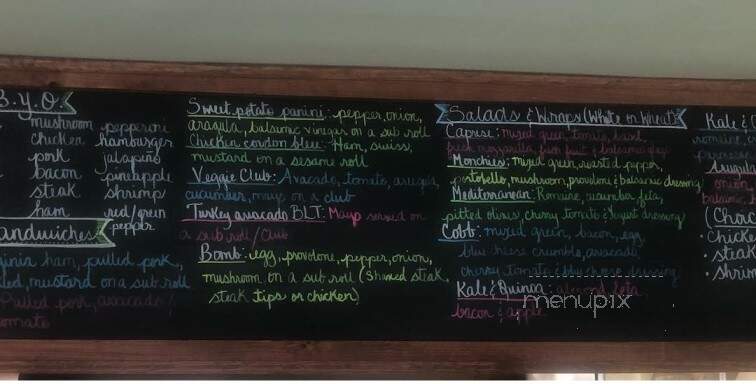 B.Y.O.
mushroom pepperoni
chicken hamburger
pork jalapeño
bacon pineapple
steak shrimp
ham red/green
pepper
andwiches
ham, pulled pork,
mustard on a sub roll
Pulled pork, avocado,
tomato
Sweet potato panini: pepper, onion,
arugula, balsamic vinegar on a sub roll
Chicken cordon bleu: Ham, swiss,
mustard on a sesame roll
Veggie Club: Avacado, tomato, arugula,
cucumber, mayo on a club
Turkey avacado BLT: Mayo served on
a sub roll/club
Bomb: egg, provolone, pepper, onion,
mushroom on a sub roll (Shaved steak,
steak tips or chicken)
Salads & Wraps (White or Wheat)
Caprese: mixed green, tomato, basil,
fresh mozzarella, fresh fruit & balsamic
Monchies: mixed green, roasted pepper,
portobello, mushroom, provolone & balsamic dressing
Mediterranean: Romaine, cucumber, feta,
pitted olives, cherry tomato & yogurt dressing
Cobb: mixed green, bacon, egg,
blu cheese crumble, avacado,
cherry tomato & blu cheese dressing
Kale & Quinoa: almond, feta,
bacon & apple
Kale &
romaine,
Arugula
onion
balsamic
(Choi
• Chicke
• steak
• shrim
menupix